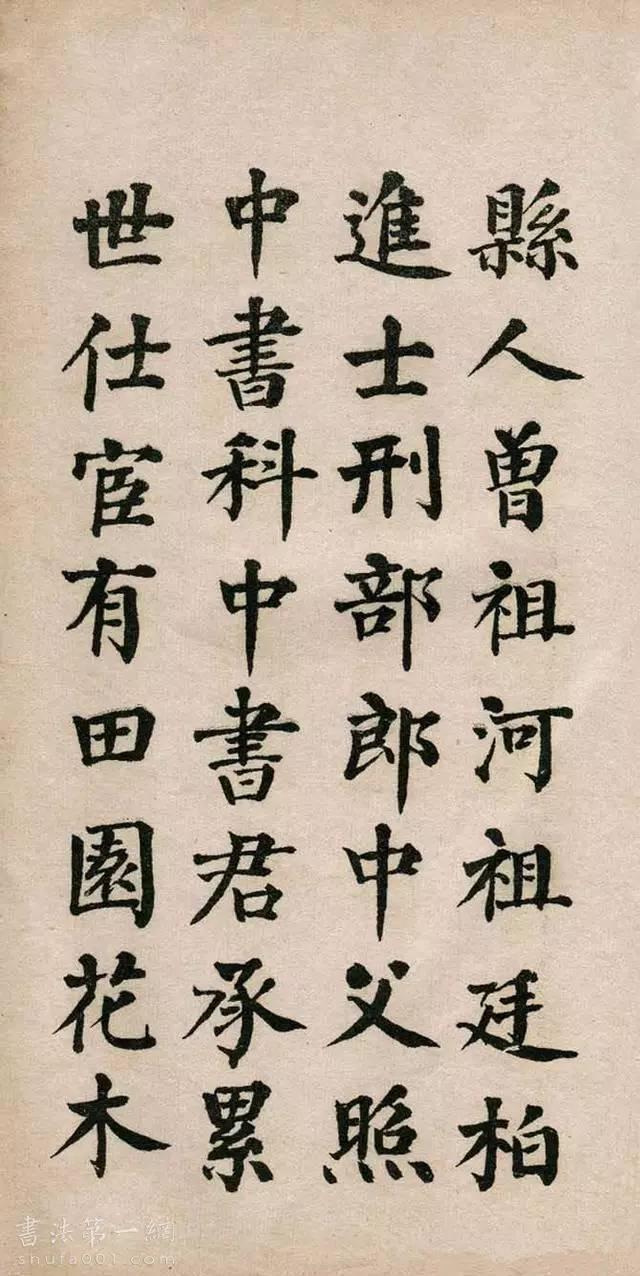 縣人曾祖河祖廷柏
進士刑部郎中父照
中書科中書君承累
世仕宦有田園花木
書法第一網
shufa001.com